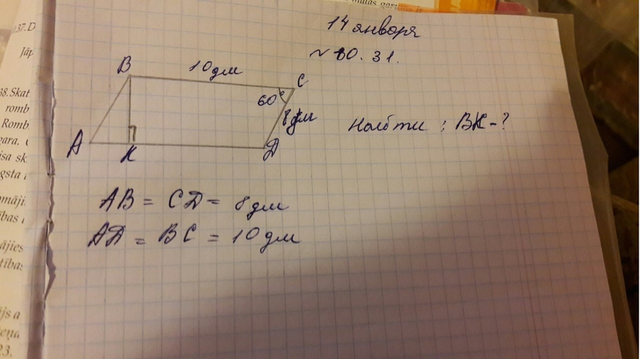 14 января
№ 10.31.
B 10дм C
60°
8дм
A K Д
Найти : BK-?
AB = CД = 8 дм
AД = BC = 10 дм
37. D
Jāp
38. Skat
romb
Romb
gara.
isa sk
gsta
omāj
ības
ājies
tības
js a
ņa
23.